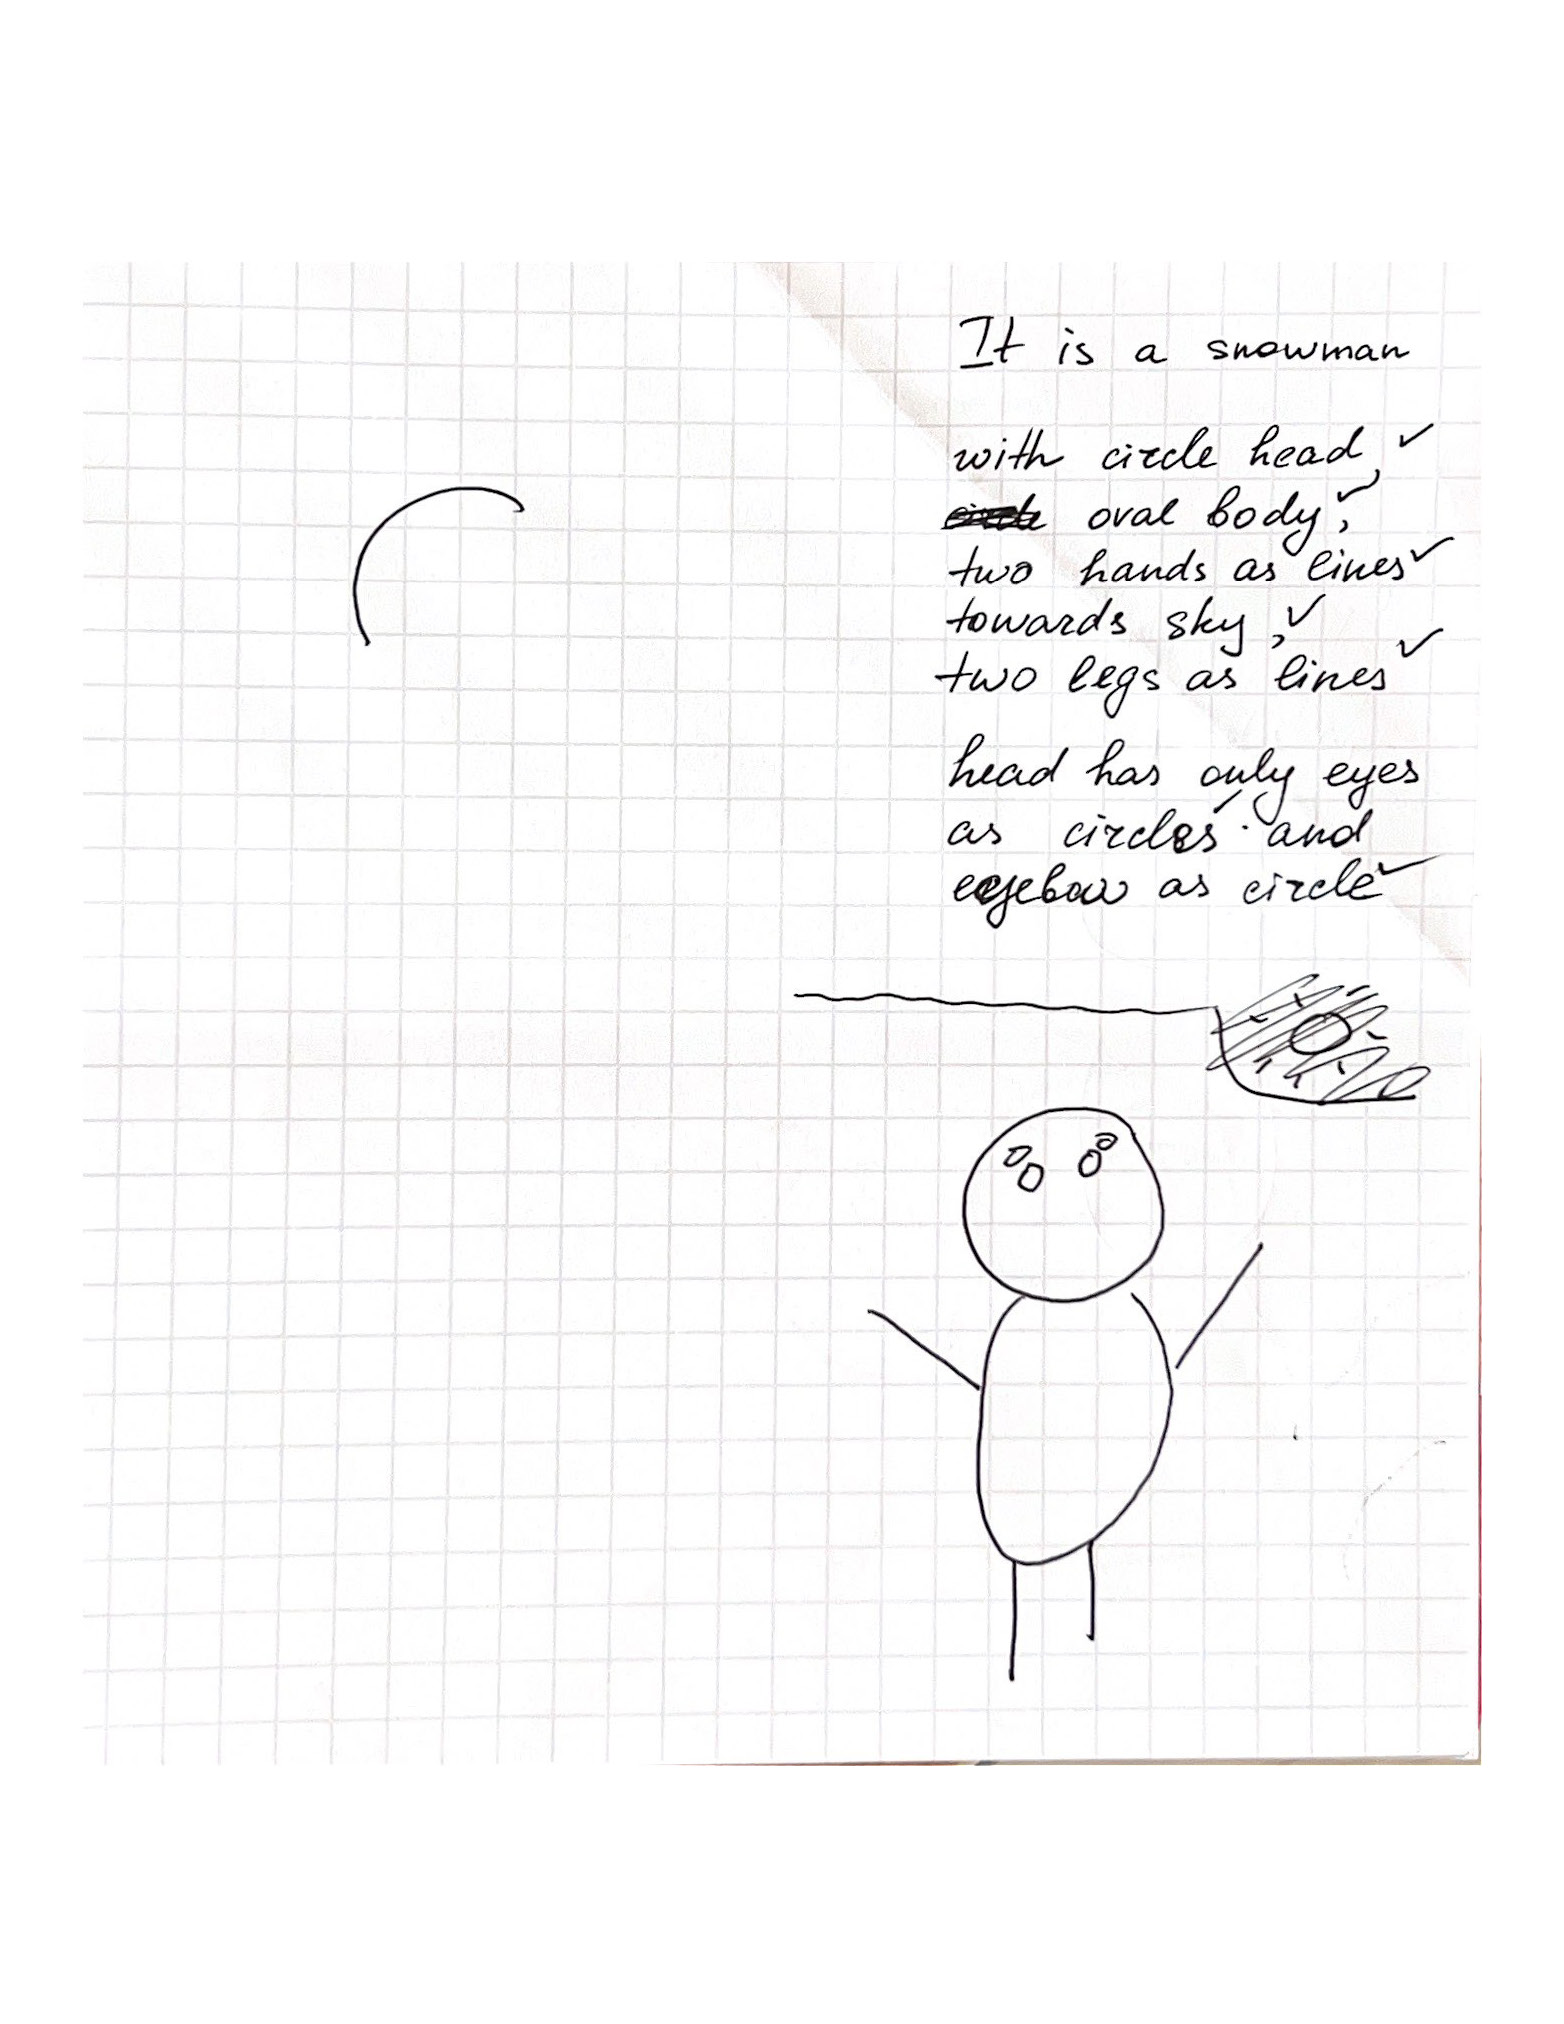 It is a snowman
with circle head,
oval body,
two hands as lines
towards sky,
two legs as lines
head has only eyes
as circles and
eyebow as circle